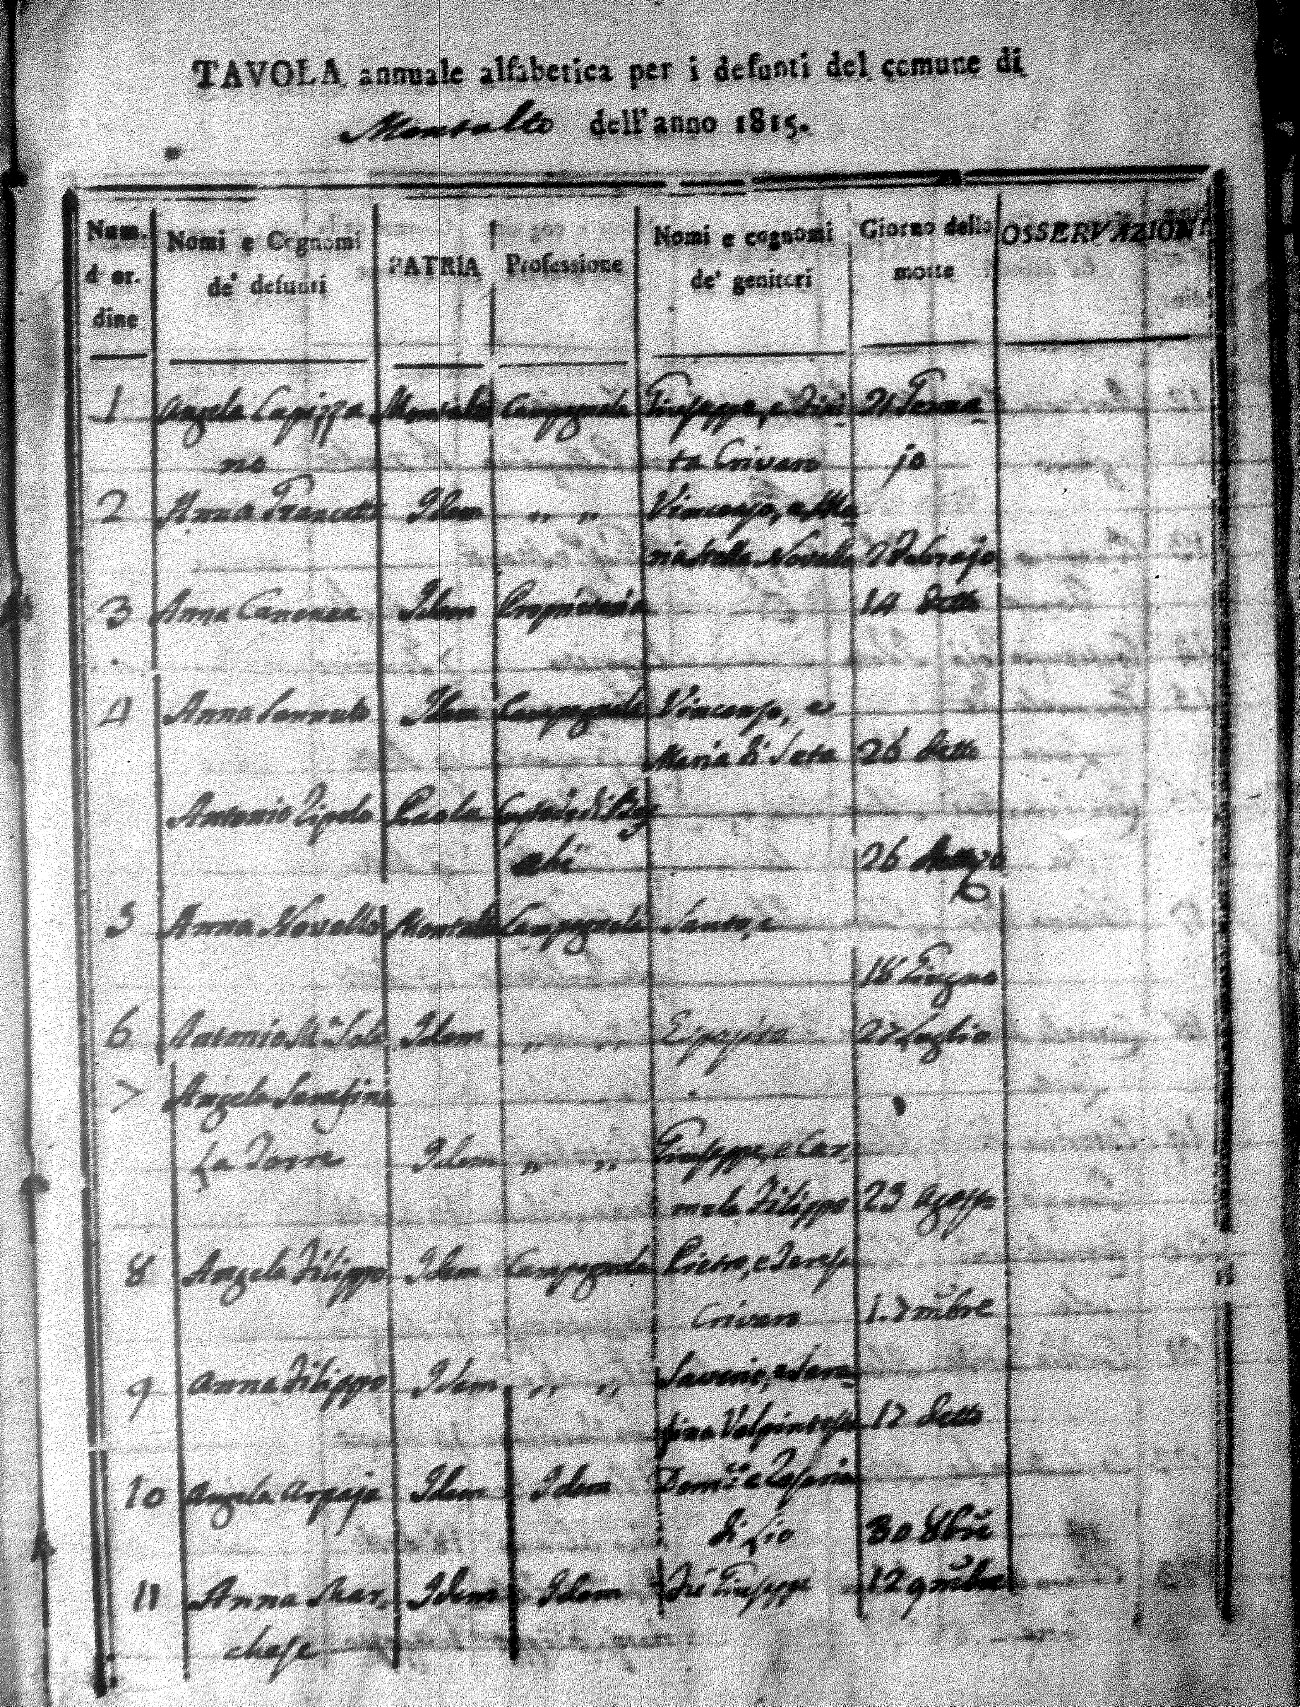 TAVOLA annuale alfabetica per i defunti del comune di
Montalto dell'anno 1815.
Num. d'or. dine
Nomi e Cognomi de' defunti
PATRIA
Professione
Nomi e cognomi de' genitori
Giorno della morte
OSSERVAZIONI
1 Angela Capizza Montalto Campagnola Giuseppe, e Bri 21 Genna
no ta Crivaro jo
2 Anna Idem " " Vincenzo, e Ma
Novello
3 Anna Canonza Idem Proprietaria 14 detto
4 Anna Idem Campagnola Vincenzo, e
Maria di Seta 26 detto
Antonio Zipolo Paola
26 Marzo
5 Anna Novello Montalto Campagnola Santo, e
18 Giugno
6 Antonio Idem " " 27 Luglio
7 Angela Serafina
La Torre Idem " " Giuseppe, e Car
mela Filippo 23 Agosto
8 Angela Filippo Idem Campagnola Pietro, e Teresa
Crivaro 1. 7mbre
9 Anna Filippo Idem " " Saverio, e Sera
fina Volpintesta 17 detto
10 Angela Arpaja Idem Idem
di Lio 30 8bre
11 Anna Mar- Idem Idem Giuseppe 12 9mbre
chese